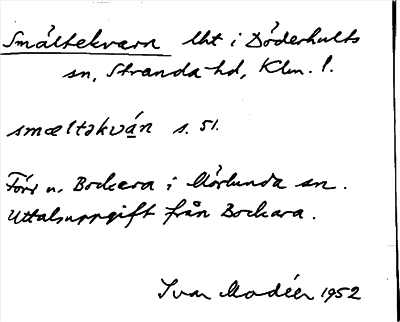 Smältekvarn lht i Döderhults
sn, Stranda hd, Klm. l.
smæltəkvá̱n s. 51.
Förr u. Bockara i Mörlunda sn.
Uttalsuppgift från Bockara.
Ivar Modéer 1952